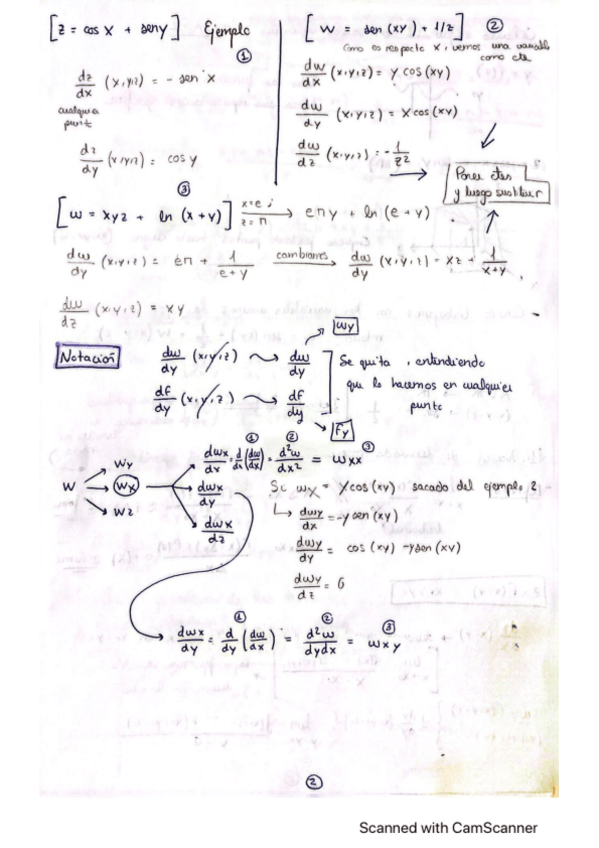 [z = cos x + sen y] Ejemplo
①
dz/dx (x,y,z) = - sen x
cualquier punt
dz/dy (x,y,z) = cos y
[w = sen (xy) + 1/z] ②
Como es respecto x, vemos una variable como cte
dw/dx (x,y,z) = y cos(xy)
dw/dy (x,y,z) = x cos(xy)
dw/dz (x,y,z) = - 1/z²
Poner ctes y luego sustituir
③
[w = xyz + ln (x+y)] x=e ; z=n → e n y + ln (e+y)
dw/dy (x,y,z) = en + 1/(e+y) cambiamos → dw/dy (x,y,z) = xz + 1/(x+y)
dw/dz (x,y,z) = xy
Notación
dw/dy (x,y,z) → dw/dy
wy
dF/dy (x,y,z) → dF/dy
Fy
Se quita, entendiendo
que lo hacemos en cualquier
punto
① ② ③
w → wy
wx
wz
dwx/dx = d/dx (dw/dx) = d²w/dx² = wxx
dwx/dy
dwx/dz
Si wx = y cos(xy) sacado del ejemplo 2
dwx/dx = -y sen (xy)
dwy/dy = cos (xy) - y sen (xy)
dwy/dz = 0
① ② ③
dwx/dy = d/dy (dw/dx) = d²w/dydx = wxy
②
Scanned with CamScanner